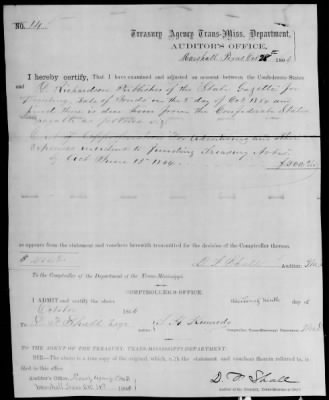 No. 14
Treasury Agency Trans-Miss. Department,
AUDITOR'S OFFICE,
Marshall, Texas, Oct 28th 1864
I hereby certify, That I have examined and adjusted an account between the Confederate States
and D. Richardson Publisher of the State Gazette for
Sale of Bonds on the 3 day of Oct 1864 and
find there is due him from the Confederate States
as follows viz
for advertising and other
expenses incident to funding Treasury Notes
by act June 13" 1864.
$300
as appears from the statement and vouchers herewith transmitted for the decision of the Comptroller thereon.
D. F. Shall Auditor
To the Comptroller of the Department of the Trans-Mississippi.
COMPTROLLER'S OFFICE.
I ADMIT and certify the above this Twenty ninth day of
October 1864
To D. F. Shall Esqr
Comptroller, Trans-Mississippi Department
TO THE AGENT OF THE TREASURY, TRANS-MISSISSIPPI DEPARTMENT:
SIR—The above is a true copy of the original, which with the statement and vouchers therein referred to, is
filed in this office.
Auditor's Office, Treas. Agency T.M.D.
Marshall Texas Oct 1864
D. F. Shall
Auditor of the Treasury, Trans-Mississippi Dep't.